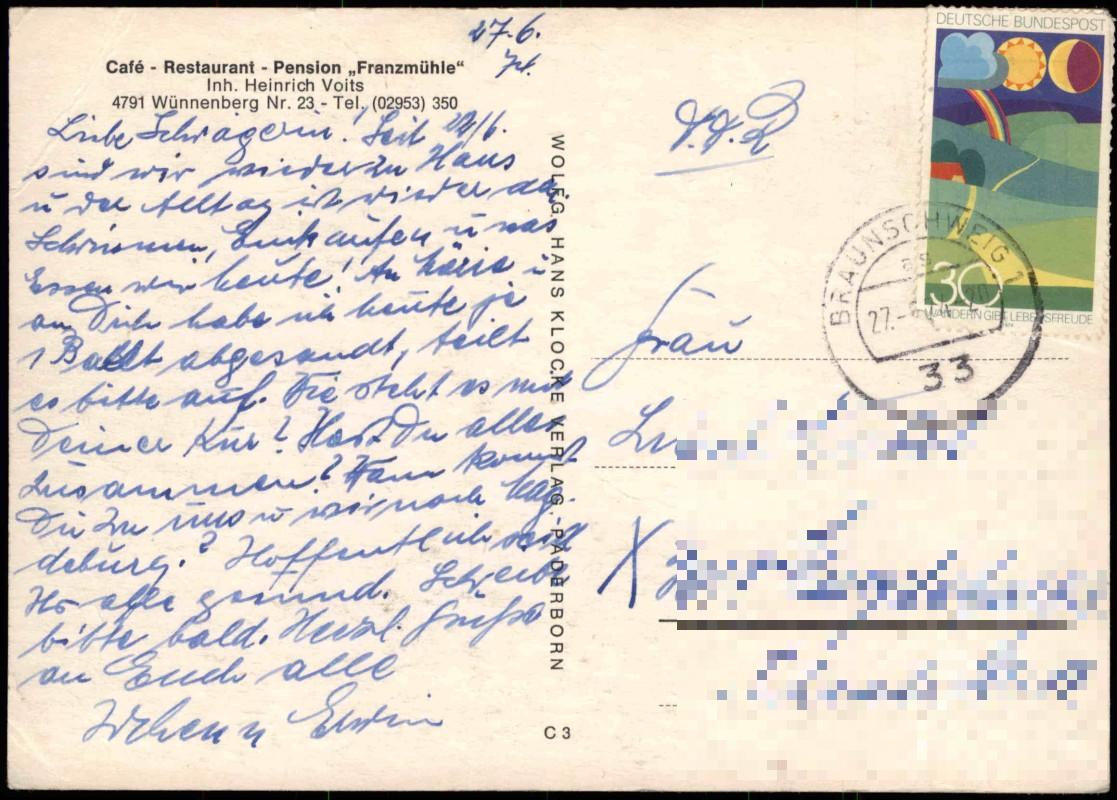 27.6.
Café - Restaurant - Pension „Franzmühle“
Inh. Heinrich Voits
4791 Wünnenberg Nr. 23 - Tel. (02953) 350
Liebe Schwägerin! Seit 22/6.
sind wir wieder zu Haus
u der Alltag ist wieder da
Schwimmen, Einkaufen u was
Essen wir heute! An u
an Dich habe ich heute je
1 abgesandt, teilt
es bitte auf. Wie steht es mit
Deiner Kur? Hast Du alles
zusammen? Wann kommst
Du zu uns u wir nach Mag-
deburg? Hoffentlich seit
Ihr alle gesund. Schreib
bitte bald. Herzl. Grüße
an Euch alle
Erwin
WOLFG. HANS KLOCKE VERLAG, PADERBORN
C 3
DEUTSCHE BUNDESPOST
30
WANDERN GIBT LEBENSFREUDE
BRAUNSCHWEIG 1
27.-
33
Frau